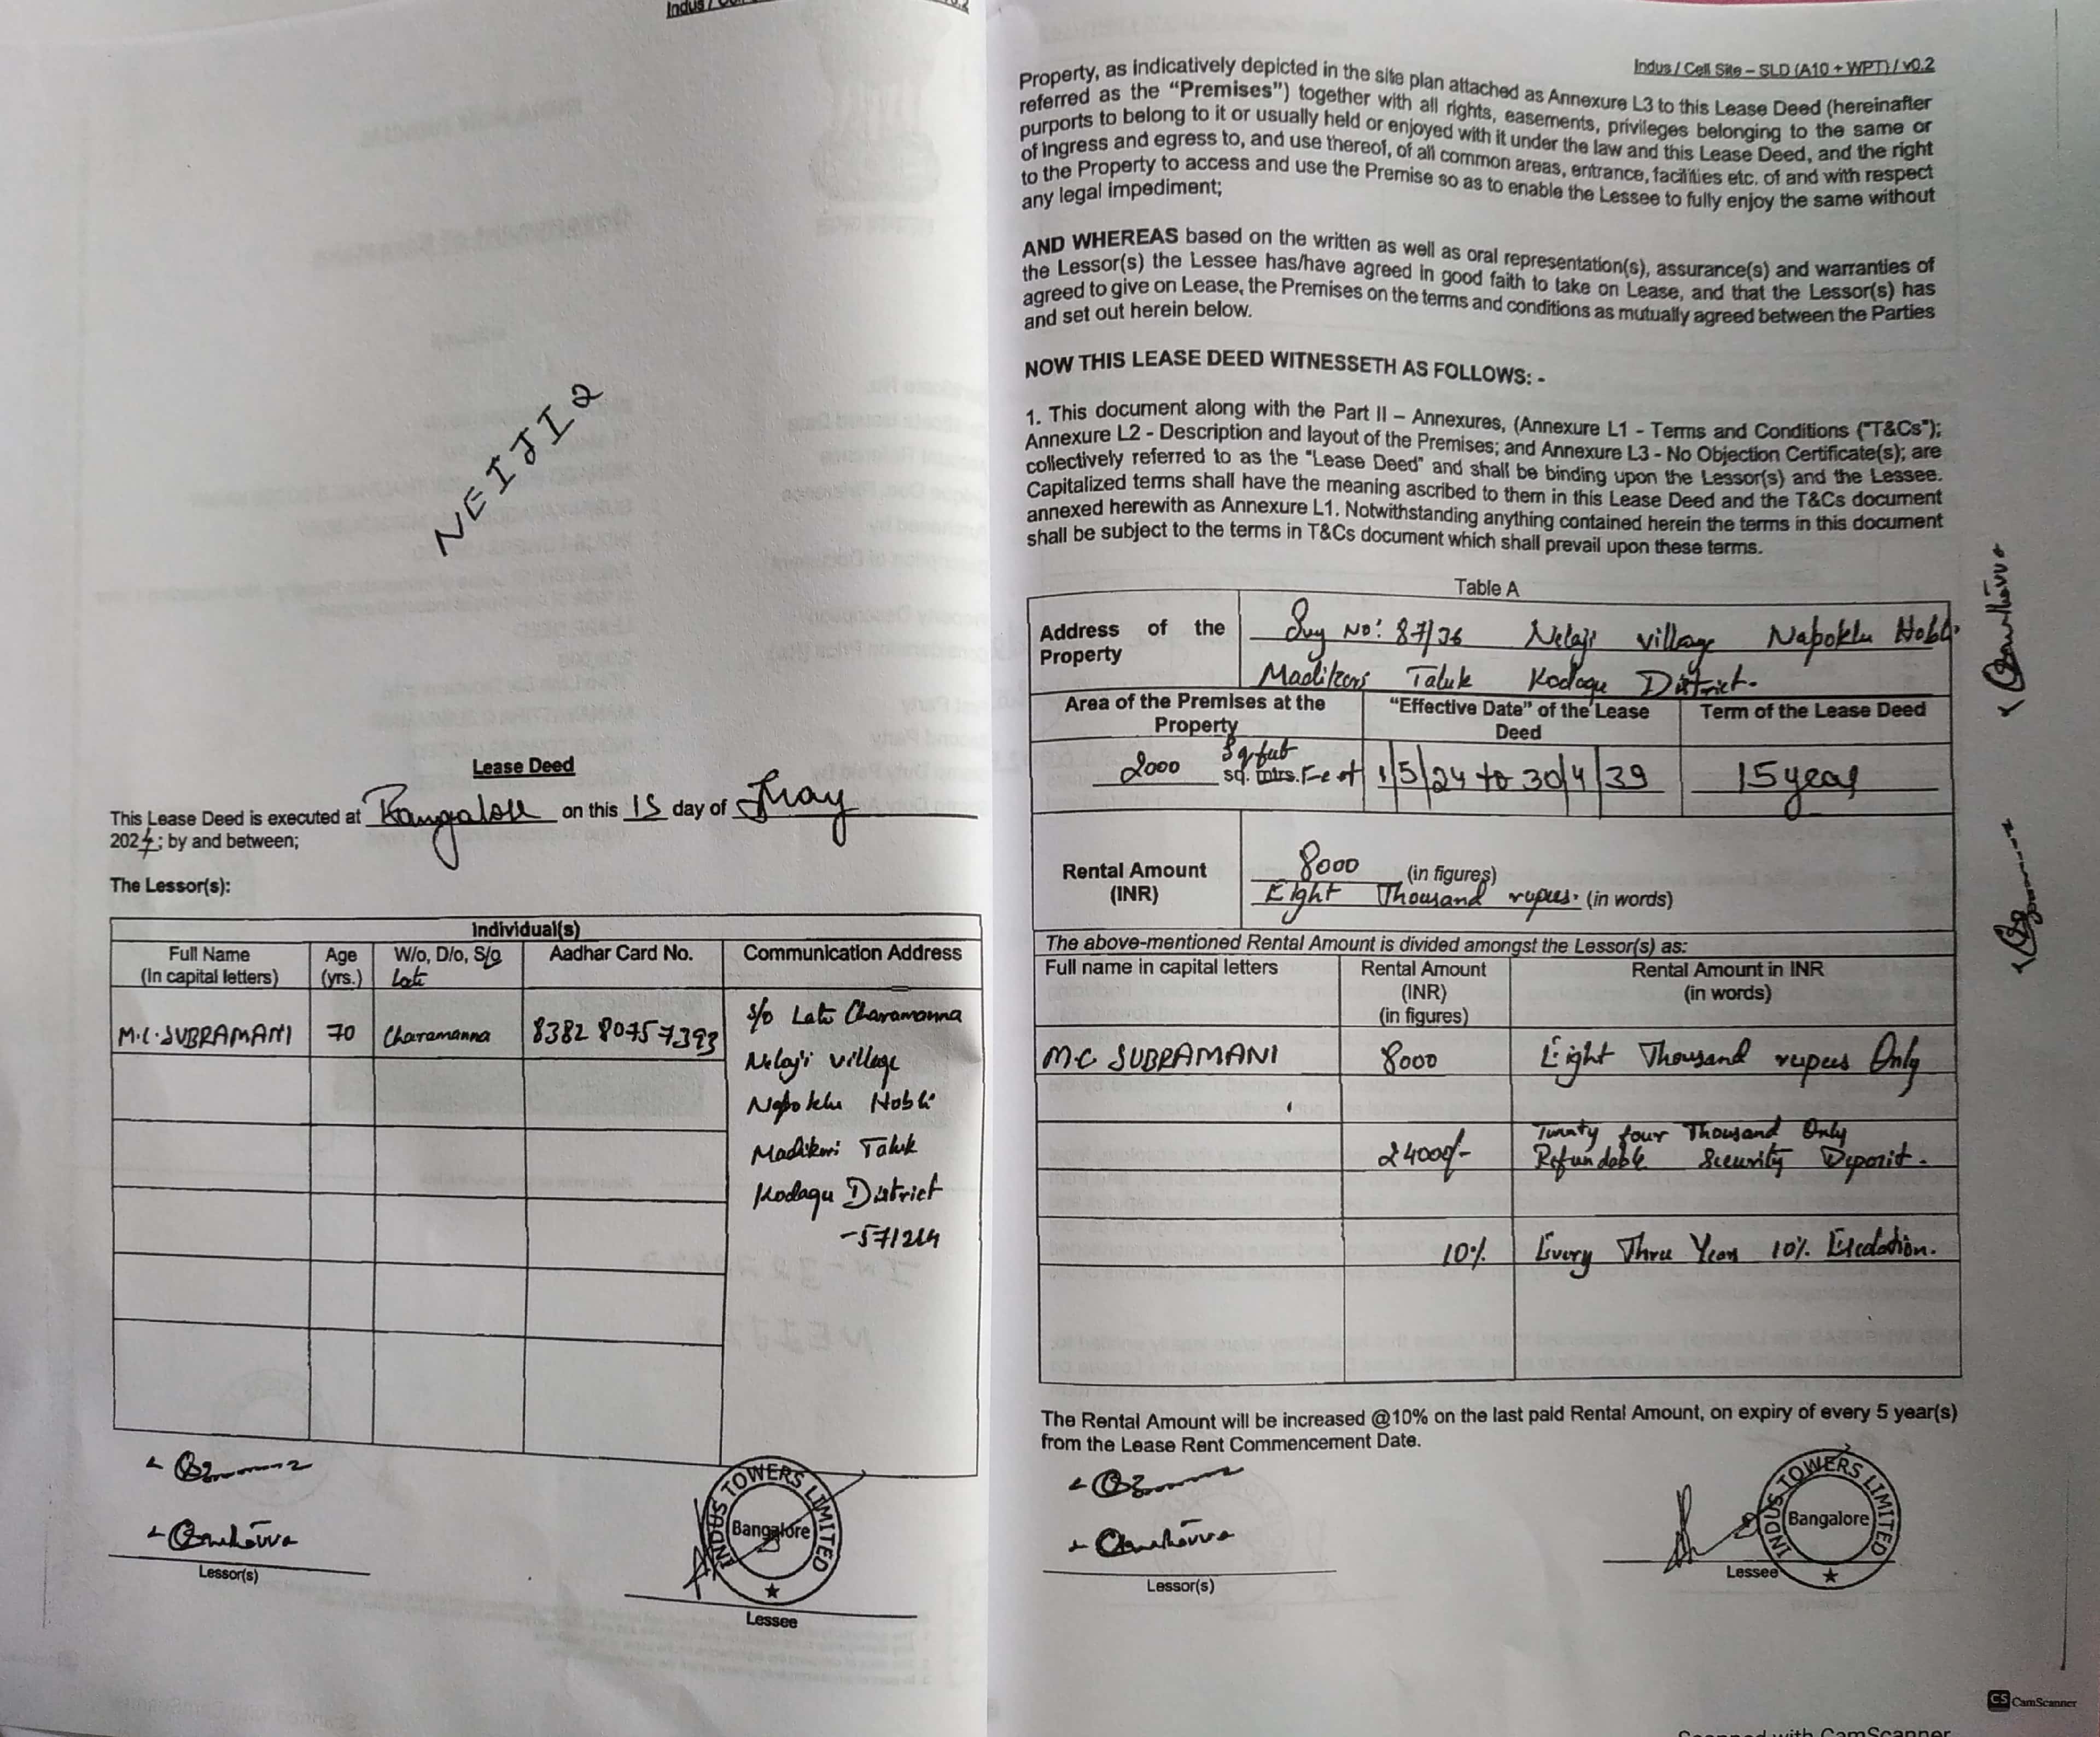 NEIJI2
Lease Deed
This Lease Deed is executed at Bangalore on this 15 day of May
2024; by and between;
The Lessor(s):
Individual(s)
Full Name
(In capital letters)
Age
(yrs.)
W/o, D/o, S/o
Late
Aadhar Card No.
Communication Address
M.C. SUBRAMANI
70
Charamanna
8382 8075 7393
S/o Late Charamanna
Nelaji village
Napoklu Hobli
Madikeri Taluk
Kodagu District
-571214
INDUS TOWERS LIMITED
Bangalore
Lessor(s)
Lessee
Indus / Cell Site – SLD (A10 + WPT) / v0.2
Property, as indicatively depicted in the site plan attached as Annexure L3 to this Lease Deed (hereinafter
referred as the “Premises”) together with all rights, easements, privileges belonging to the same or
purports to belong to it or usually held or enjoyed with it under the law and this Lease Deed, and the right
of ingress and egress to, and use thereof, of all common areas, entrance, facilities etc. of and with respect
to the Property to access and use the Premise so as to enable the Lessee to fully enjoy the same without
any legal impediment;
AND WHEREAS based on the written as well as oral representation(s), assurance(s) and warranties of
the Lessor(s) the Lessee has/have agreed in good faith to take on Lease, and that the Lessor(s) has
agreed to give on Lease, the Premises on the terms and conditions as mutually agreed between the Parties
and set out herein below.
NOW THIS LEASE DEED WITNESSETH AS FOLLOWS: -
1. This document along with the Part II – Annexures, (Annexure L1 - Terms and Conditions ("T&Cs");
Annexure L2 - Description and layout of the Premises; and Annexure L3 - No Objection Certificate(s); are
collectively referred to as the "Lease Deed" and shall be binding upon the Lessor(s) and the Lessee.
Capitalized terms shall have the meaning ascribed to them in this Lease Deed and the T&Cs document
annexed herewith as Annexure L1. Notwithstanding anything contained herein the terms in this document
shall be subject to the terms in T&Cs document which shall prevail upon these terms.
Table A
Address of the
Property
Suy No: 87/36 Nelaji village Napoklu Hobli
Madikeri Taluk Kodagu District.
Area of the Premises at the
Property
“Effective Date” of the Lease
Deed
Term of the Lease Deed
2000 sq. mtrs. Feet
1/5/24 to 30/4/39
15 year
Rental Amount
(INR)
8000 (in figures)
Eight Thousand rupees. (in words)
The above-mentioned Rental Amount is divided amongst the Lessor(s) as:
Full name in capital letters
Rental Amount
(INR)
(in figures)
Rental Amount in INR
(in words)
M.C SUBRAMANI
8000
Eight Thousand rupees Only
24000/-
Twnty four Thousand Only
Refundable Security Deposit.
10%
Every Three Year 10% Escalation.
The Rental Amount will be increased @10% on the last paid Rental Amount, on expiry of every 5 year(s)
from the Lease Rent Commencement Date.
INDUS TOWERS LIMITED
Bangalore
Lessor(s)
Lessee
CS CamScanner